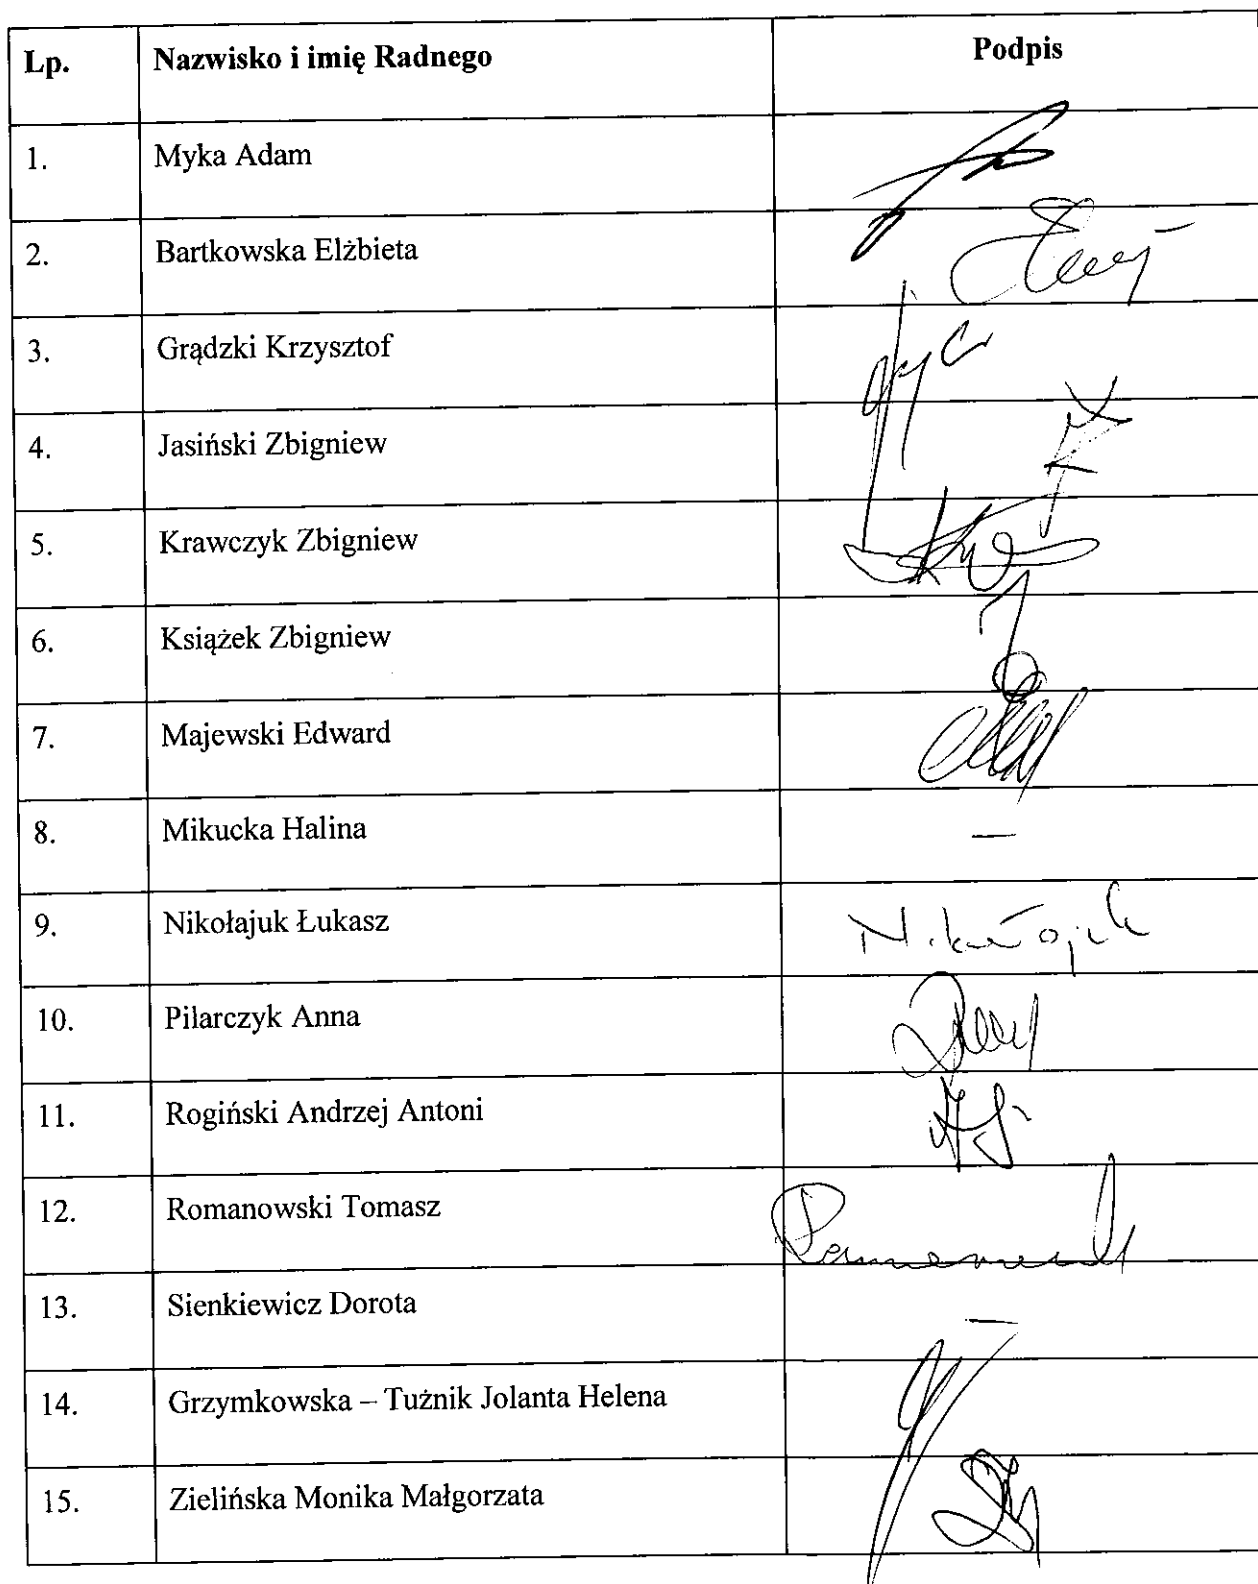 Lp. Nazwisko i imię Radnego Podpis
1. Myka Adam
2. Bartkowska Elżbieta
3. Grądzki Krzysztof
4. Jasiński Zbigniew
5. Krawczyk Zbigniew
6. Książek Zbigniew
7. Majewski Edward
8. Mikucka Halina —
9. Nikołajuk Łukasz
10. Pilarczyk Anna
11. Rogiński Andrzej Antoni
12. Romanowski Tomasz
13. Sienkiewicz Dorota —
14. Grzymkowska – Tuźnik Jolanta Helena
15. Zielińska Monika Małgorzata